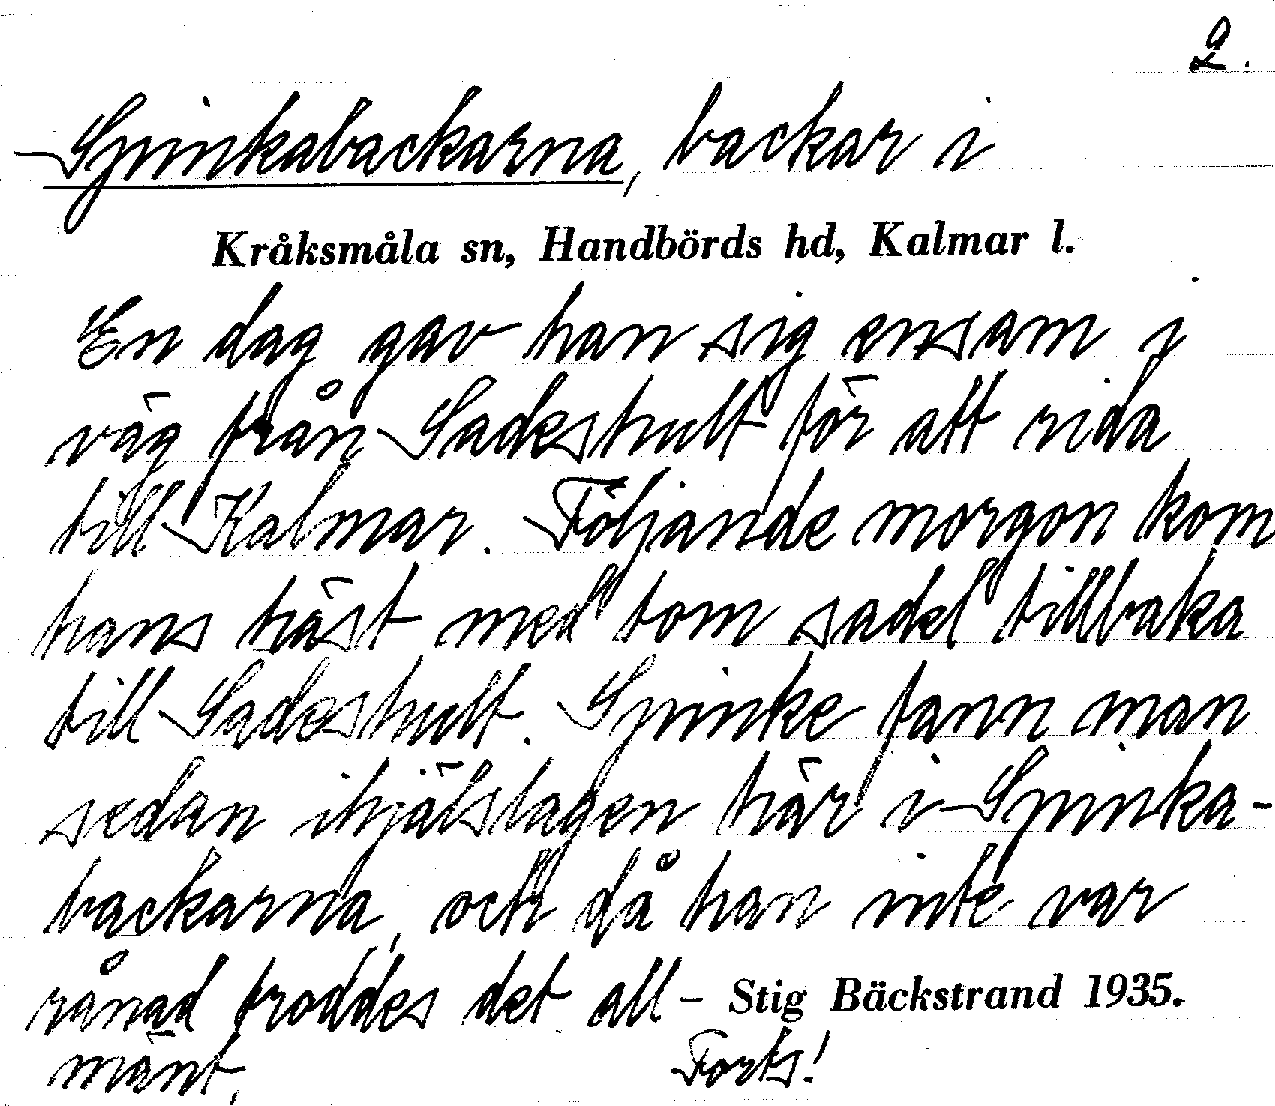 2.
Spinkabackarna, backar i
Kråksmåla sn, Handbörds hd, Kalmar l.
En dag gav han sig ensam i
väg från Sadeshult för att rida
till Kalmar. Följande morgon kom
hans häst med tom sadel tillbaka
till Sadeshult. Spinke fann man
sedan ihjälslagen här i Spinka-
backarna, och då han inte var
rånad troddes det all-
Stig Bäckstrand 1935.
mänt,
Forts!